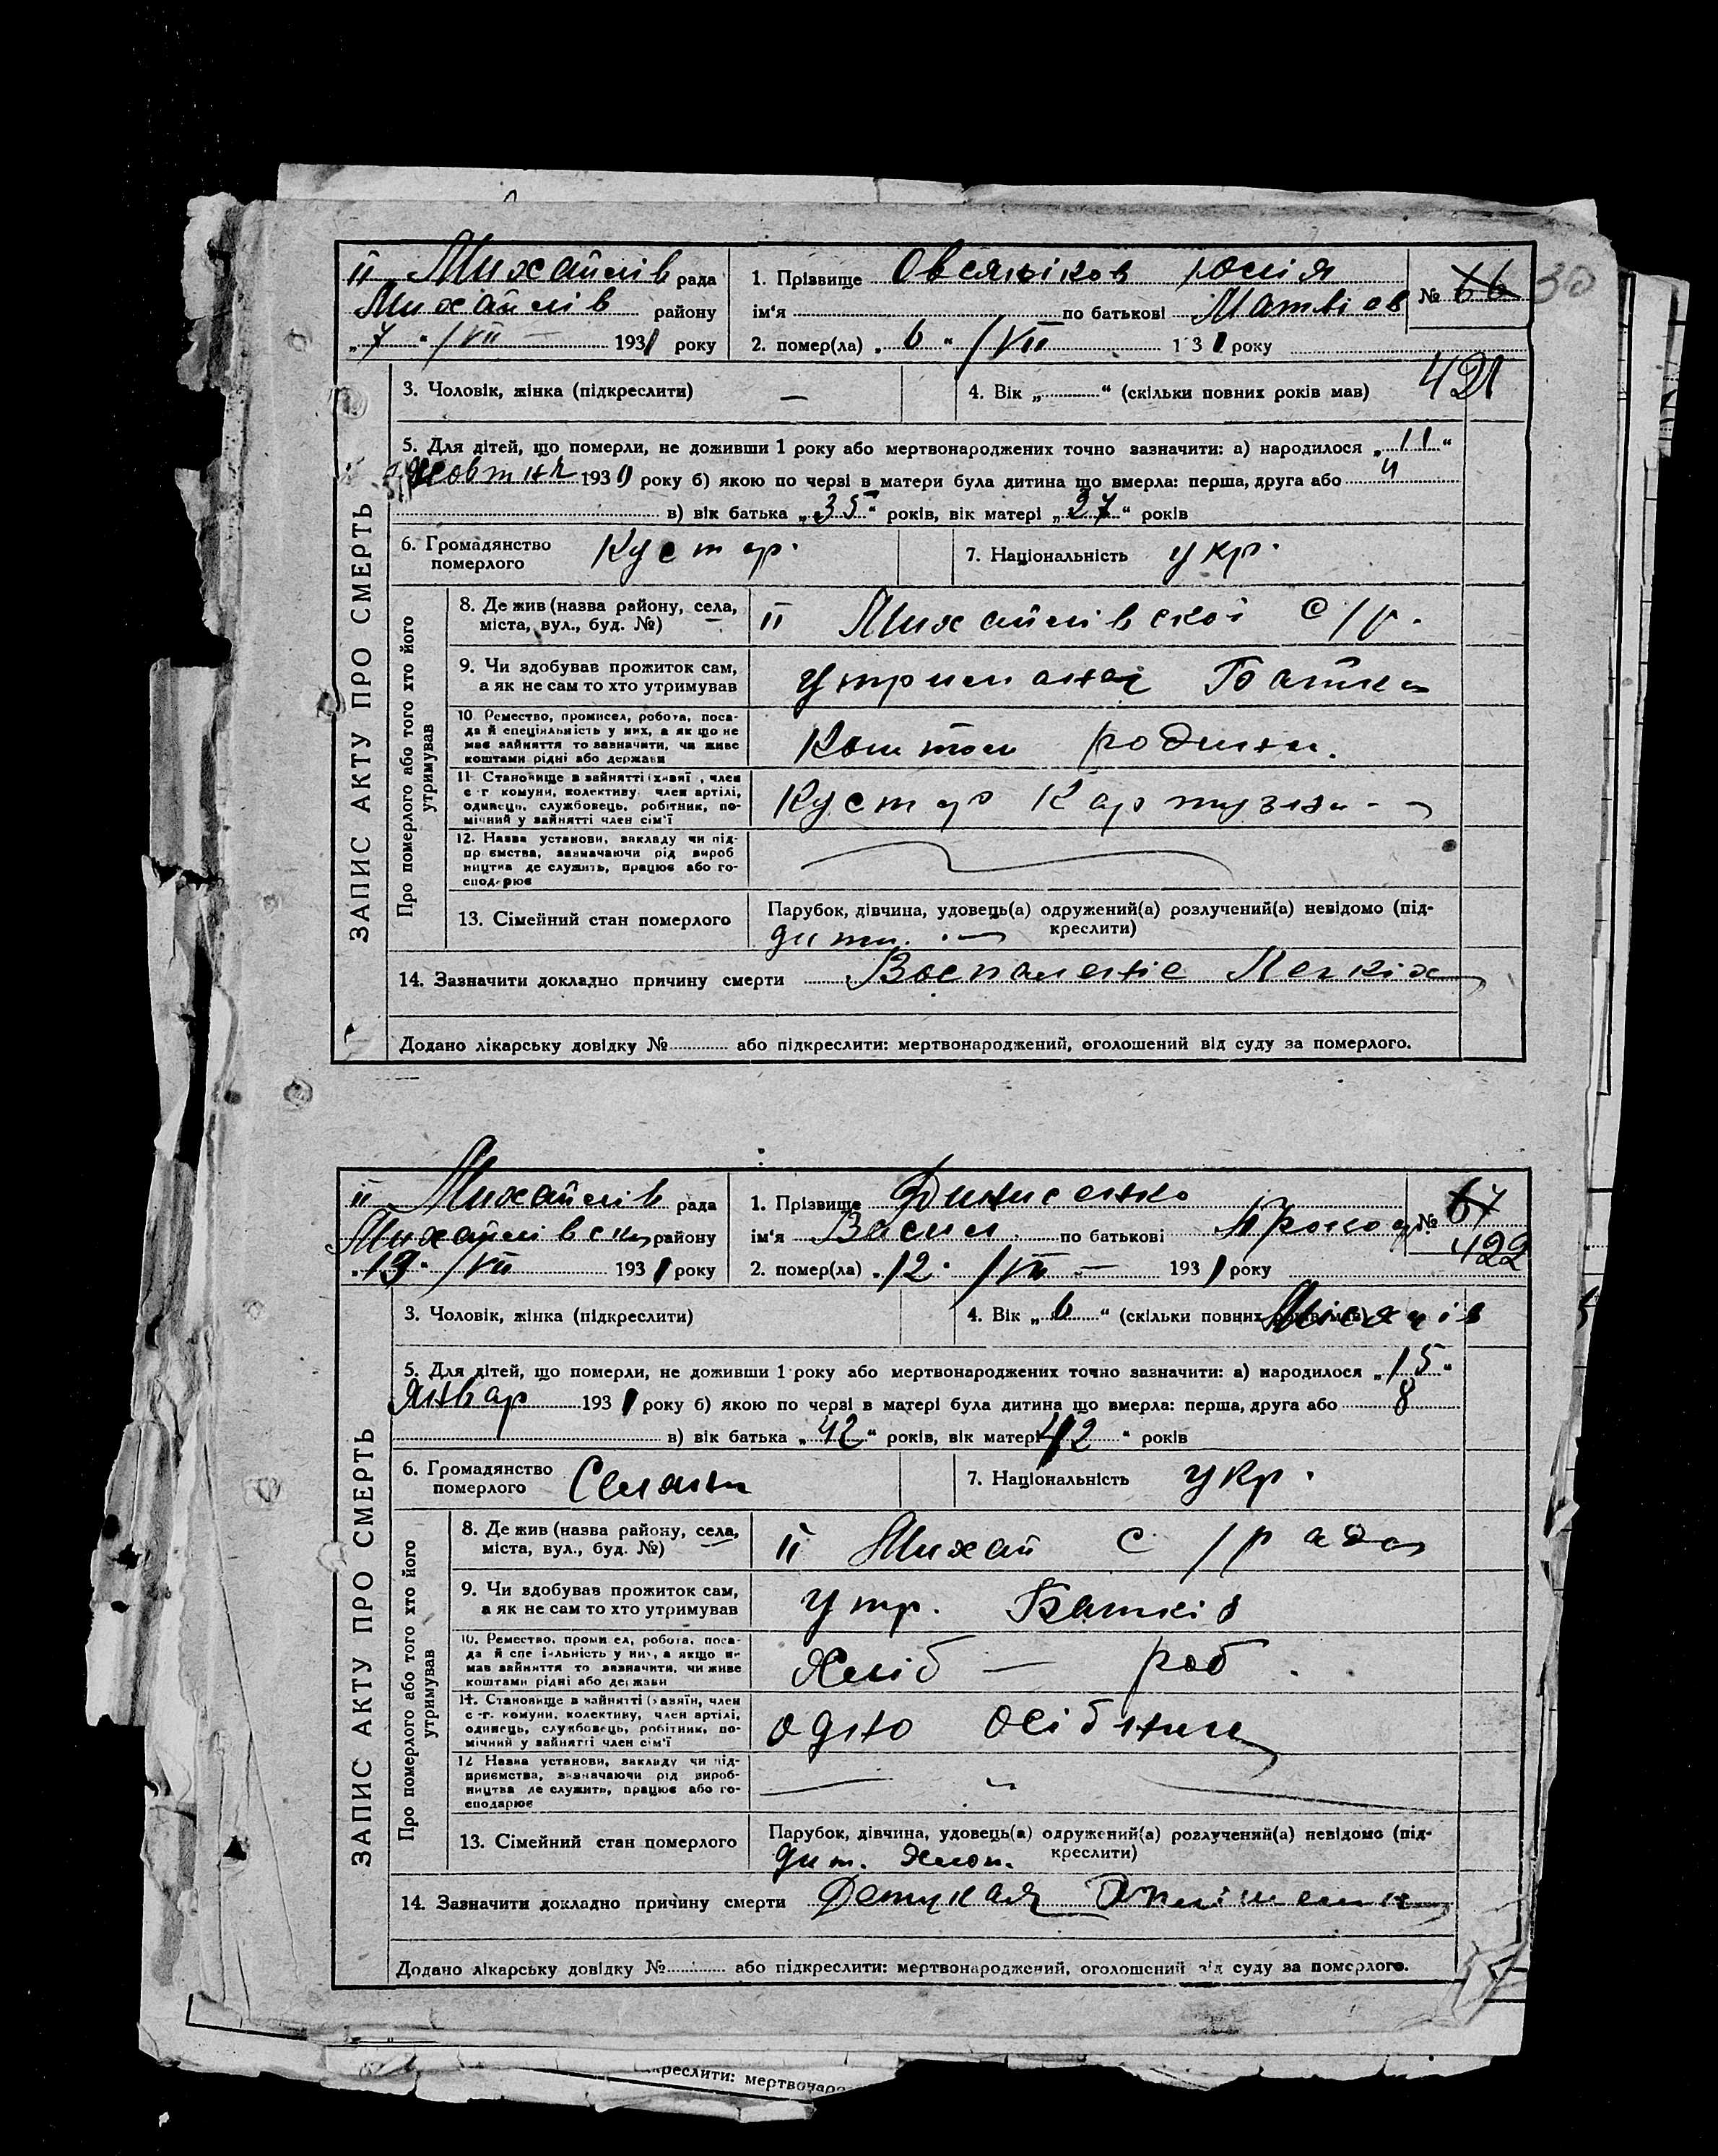 ІІ Михайлів рада
Михайлів району
„7“ /VII – 1931 року
1. Прізвище Овсяніков Юлія
ім'я по батькові Матвієв
2. помер(ла) „6“ /VII 1931 року
№ 66
30
421
3. Чоловік, жінка (підкреслити) —
4. Вік „ “ (скільки повних років мав)
ЗАПИС АКТУ ПРО СМЕРТЬ
5. Для дітей, що померли, не доживши 1 року або мертвонароджених точно зазначити: а) народилося „11“
193 року б) якою по черзі в матери була дитина що вмерла: перша, друга або
в) вік батька „35“ років, вік матері „27“ років
6. Громадянство померлого Кустар.
7. Національність укр.
Про померлого або того хто його утримував
8. Де жив (назва району, села,
міста, вул., буд. №)
ІІ Михайлівскої с/р.
9. Чи здобував прожиток сам,
а як не сам то хто утримував
Утриманні Батька
10. Ремество, промисел, робота, поса-
да й спеціяльність у них, а як що не
має зайняття то зазначити, чи живе
коштами рідні або держави
Коштом родини.
11. Становище в зайнятті (хазяї, член
с-г. комуни, колективу, член артілі,
одинець, службовець, робітник, по-
мічний у зайнятті член сім'ї
Кустар
12. Назва установи, закладу чи під-
приємства, зазначаючи рід вироб
ництва де служить, працює або го-
сподарює
13. Сімейний стан померлого
Парубок, дівчина, удовець(а) одружений(а) розлучений(а) невідомо (під-
креслити)
дити. —
14. Зазначити докладно причину смерти Воспаленіе Легкіх
Додано лікарську довідку № або підкреслити: мертвонароджений, оголошений від суду за померлого.
ІІ Михайлів рада
Михайлівськ району
„13“ /VII 1931 року
1. Прізвище Финисенко
ім'я Васил. по батькові Прокоф
2. помер(ла) „12“ /VII – 1931 року
№ 67
422
3. Чоловік, жінка (підкреслити)
4. Вік „6“ (скільки повних років мав) Місяців
ЗАПИС АКТУ ПРО СМЕРТЬ
5. Для дітей, що померли, не доживши 1 року або мертвонароджених точно зазначити: а) народилося „15“
Январ 1931 року б) якою по черзі в матері була дитина що вмерла: перша, друга або 8
в) вік батька „42“ років, вік матері „42“ років
6. Громадянство померлого Селянин
7. Національність укр.
Про померлого або того хто його утримував
8. Де жив (назва району, села,
міста, вул., буд. №)
ІІ Михай с/рада
9. Чи здобував прожиток сам,
а як не сам то хто утримував
Утр. Батків
10. Ремество, промисел, робота, поса-
да й спеціяльність у них, а якщо не
мав зайняття то зазначити, чи живе
коштами рідні або держави
Хліб — роб.
11. Становище в зайнятті (хазяїн, член
с-г. комуни, колективу, член артілі,
одинець, службовець, робітник, по-
мічний у зайнятті член сім'ї
одно осібник
12 Назва установи, закладу чи під-
приємства, зазначаючи рід вироб-
ництва де служить, працює або го-
сподарює
13. Сімейний стан померлого
Парубок, дівчина, удовець(а) одружений(а) розлучений(а) невідомо (під-
креслити)
дит. хлоп.
14. Зазначити докладно причину смерти
Додано лікарську довідку № або підкреслити: мертвонароджений, оголошений від суду за померлого.
креслити: мертвонаро